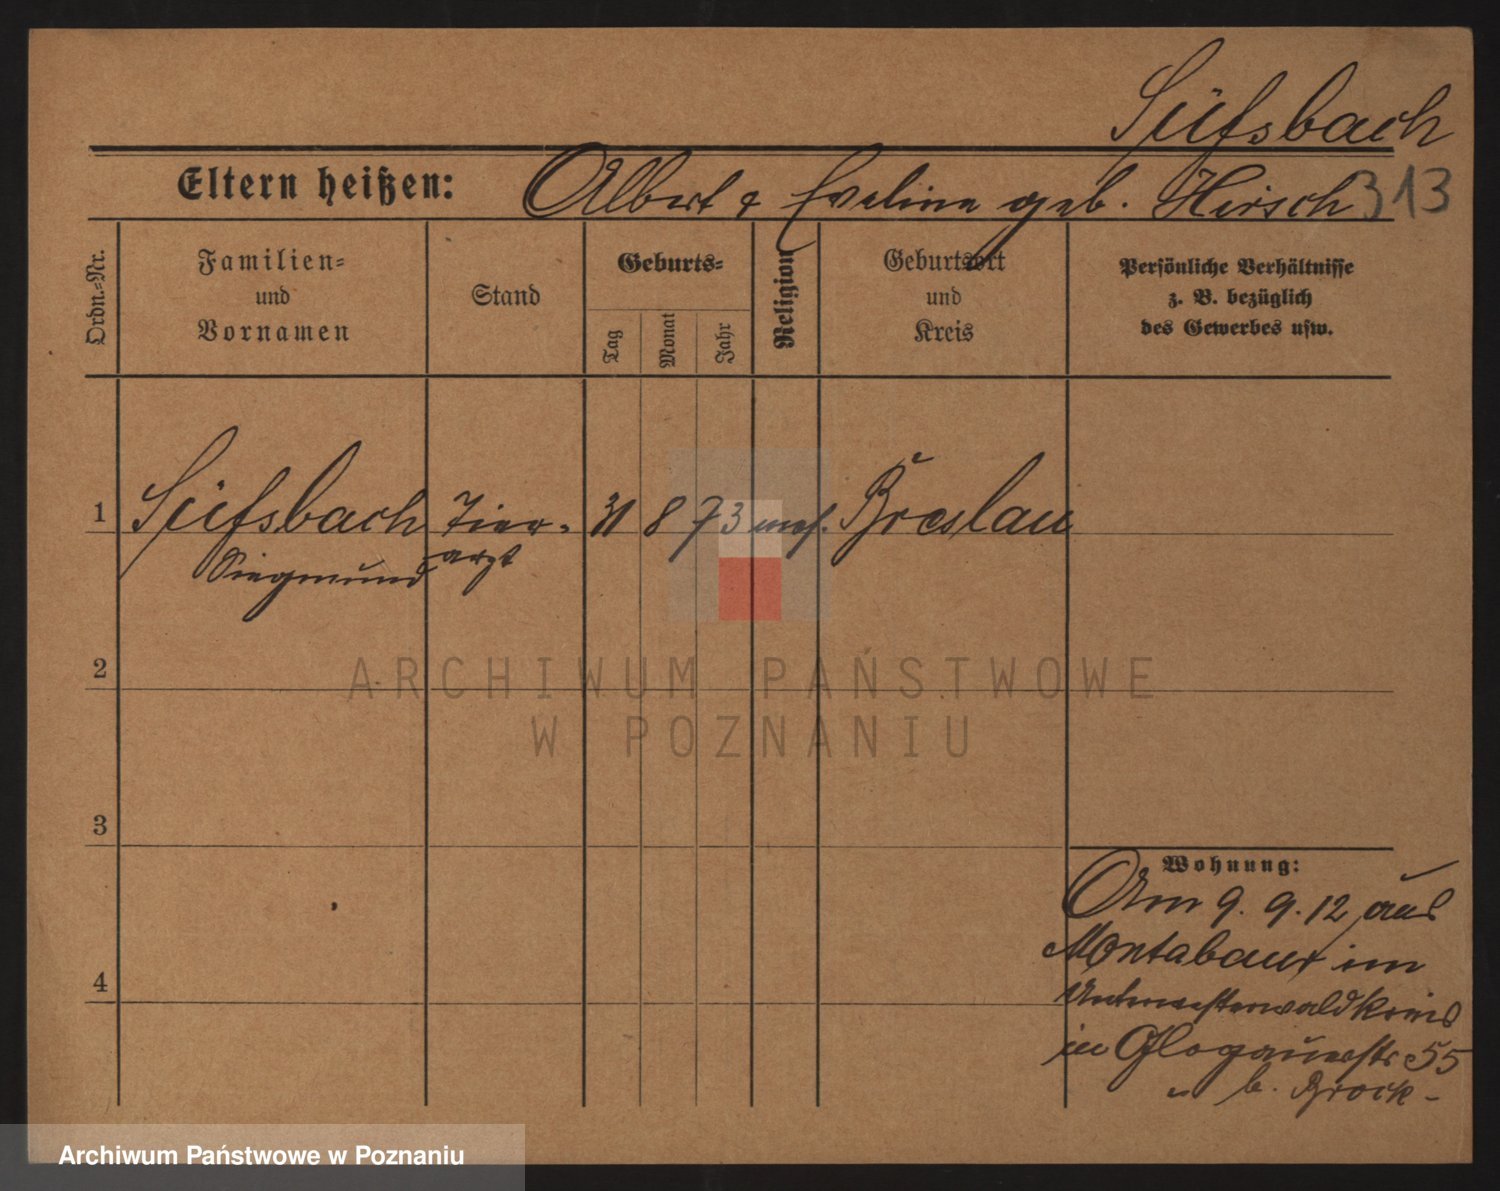 Süßsbach
Eltern heißen: Albert & Eveline geb. Hirsch 313
Ordn.-Nr.
Familien-
und
Vornamen
Stand
Geburts-
Tag
Monat
Jahr
Religion
Geburtsort
und
Kreis
Persönliche Verhältnisse
z. B. bezüglich
des Gewerbes usw.
1 Süßsbach Tier- 31 8 73 mos. Breslau
Siegmund arzt
2
3
4
Wohnung:
Am 9. 9. 12 aus
Montabaur im
Unterwesterwaldkreis
in Glogauerstr 55
b. Brock-
ARCHIWUM PAŃSTWOWE
W POZNANIU
Archiwum Państwowe w Poznaniu